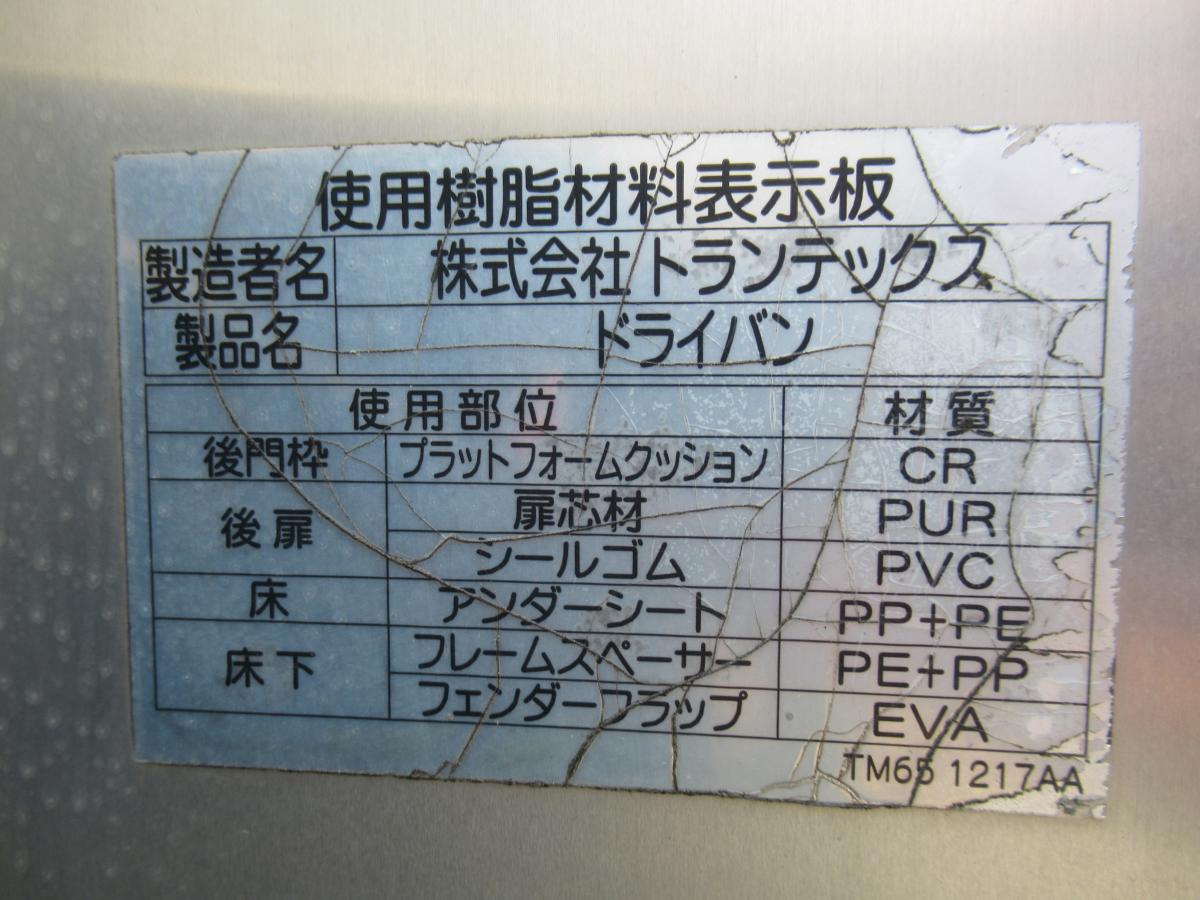 使用樹脂材料表示板
製造者名 株式会社トランテックス
製品名 ドライバン
使用部位 材質
後門枠 プラットフォームクッション CR
後扉 扉芯材 PUR
シールゴム PVC
床 アンダーシート PP+PE
床下 フレームスペーサー PE+PP
フェンダーフラップ EVA
TM65 1217AA